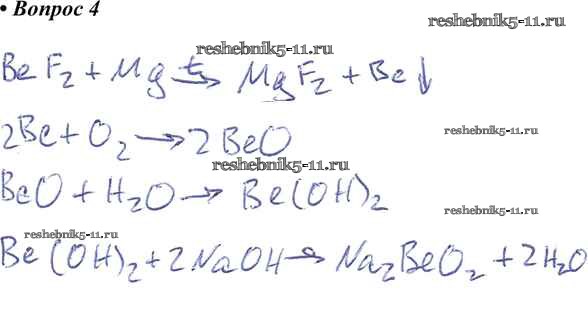 • Вопрос 4
reshebnik5-11.ru
reshebnik5-11.ru
BeF₂ + Mg t→ MgF₂ + Be↓
2Be + O₂ → 2BeO
reshebnik5-11.ru
reshebnik5-11.ru
BeO + H₂O → Be(OH)₂
reshebnik5-11.ru
reshebnik5-11.ru
Be(OH)₂ + 2NaOH → Na₂BeO₂ + 2H₂O